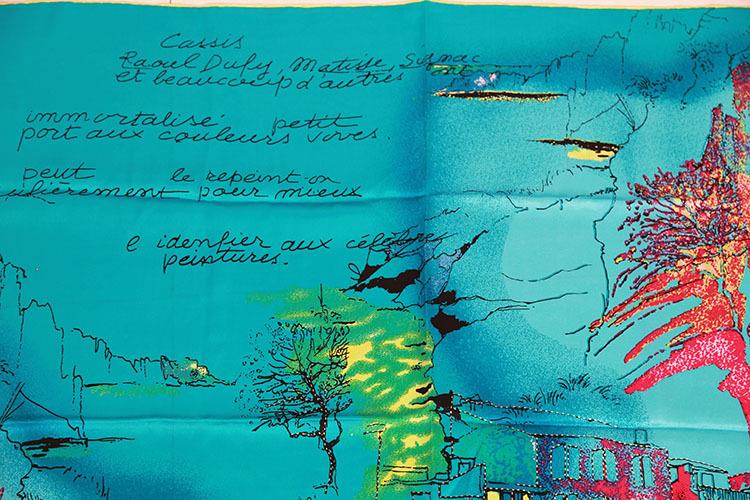 Cassis
Raoul Dufy, Matisse, Signac
et beaucoup d'autres ont
immortalisé petit
port aux couleurs vives.
peut le repeint-on
ulièrement pour mieux
l idenfier aux célèbres
peintures.